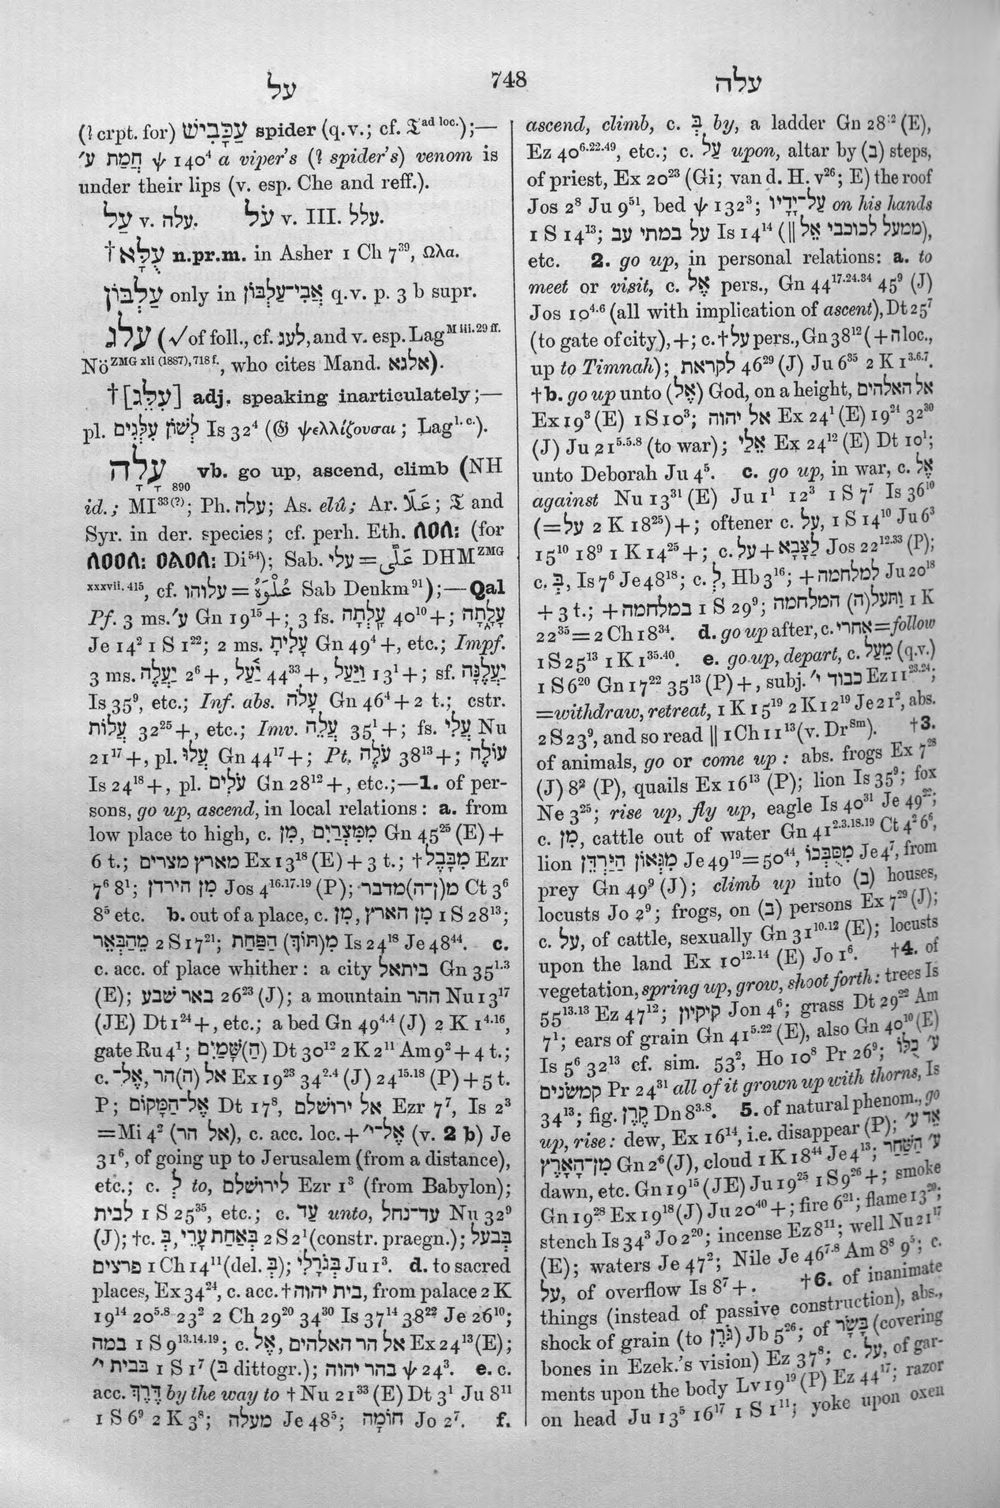 על
748
עלה
(? crpt. for) עַכָּבִישׁ spider (q.v.; cf. 𝔗 ad loc.);—
חֲמַת ע׳ ψ 140⁴ a viper's (? spider's) venom is
under their lips (v. esp. Che and reff.).
עַל v. עלה. עֹל v. III. עלל.
† עֻלָּא n.pr.m. in Asher 1 Ch 7³⁹, Ωλα.
עַלְבּוֹן only in אֲבִי־עַלְבּוֹן q.v. p. 3 b supr.
עלג (√ of foll., cf. לעג, and v. esp. Lag M iii. 29 ff.
Nö ZMG xli (1887), 718 f., who cites Mand. אלגא).
† [עִלֵּג] adj. speaking inarticulately;—
pl. לְשׁוֹן עִלְּגִים Is 32⁴ (𝔊 ψελλίζουσαι; Lag l. c.).
עָלָה 890 vb. go up, ascend, climb (NH
id.; MI³³⁽?⁾; Ph. עלה; As. elû; Ar. عَلَا; 𝔗 and
Syr. in der. species; cf. perh. Eth. ለዐለ: (for
DHM ZMG
xxxvii. 415, cf. עלוהו = عُلْوَهُ Sab Denkm⁹¹);—Qal
Pf. 3 ms. ע׳ Gn 19¹⁵+; 3 fs. עָלְתָה 40¹⁰+; עָלָתָה
Je 14² 1 S 1²²; 2 ms. עָלִיתָ Gn 49⁴+, etc.; Impf.
3 ms. יַעֲלֶה 2⁶+, יַעַל 44³³+, וַיַּעַל 13¹+; sf. יַעֲלֶנָּה
Is 35⁹, etc.; Inf. abs. עָלֹה Gn 46⁴ + 2 t.; cstr.
עֲלוֹת 32²⁵+, etc.; Imv. עֲלֵה 35¹+; fs. עֲלִי Nu
21¹⁷+, pl. עֲלוּ Gn 44¹⁷+; Pt. עֹלֶה 38¹³+; עוֹלֶה
Is 24¹⁸+, pl. עֹלִים Gn 28¹²+, etc.;—1. of per-
sons, go up, ascend, in local relations: a. from
low place to high, c. מִן, מִמִּצְרַיִם Gn 45²⁵ (E) +
6 t.; מארץ מצרים Ex 13¹⁸ (E) + 3 t.; † מִבָּבֶל Ezr
7⁶ 8¹; מִן הירדן Jos 4¹⁶·¹⁷·¹⁹ (P); מ(ן־ה)מדבר Ct 3⁶
8⁵ etc. b. out of a place, c. מִן, מִן הארץ 1 S 28¹³;
מֵהַבְּאֵר 2 S 17²¹; מִ(תּוֹךְ) הַפַּחַת Is 24¹⁸ Je 48⁴⁴. c.
c. acc. of place whither: a city בֵּיתאל Gn 35¹·³
(E); באר שבע 26²³ (J); a mountain ההר Nu 13¹⁷
(JE) Dt 1²⁴+, etc.; a bed Gn 49⁴·⁴ (J) 2 K 1⁴·¹⁶,
gate Ru 4¹; (הַ)שָּׁמַיִם Dt 30¹² 2 K 2¹¹ Am 9² + 4 t.;
c. אֶל־, אל (ה)הר Ex 19²³ 34²·⁴ (J) 24¹⁵·¹⁸ (P) + 5 t.
P; אֶל־הַמָּקוֹם Dt 17⁸, אל ירושלם Ezr 7⁷, Is 2³
=Mi 4² (אל הר), c. acc. loc. + אֶל־י׳ (v. 2 b) Je
31⁶, of going up to Jerusalem (from a distance),
etc.; c. לְ to, לירושלם Ezr 1³ (from Babylon);
לבית 1 S 25³⁵, etc.; c. עַד unto, עד־נחל Nu 32⁹
(J); † c. בְּ, בְּאַחַת עָרֵי 2 S 2¹ (constr. praegn.); בְּבעל
פרצים 1 Ch 14¹¹ (del. בְּ); בְּגֹרָלִי Ju 1³. d. to sacred
places, Ex 34²⁴, c. acc. † בית יהוה, from palace 2 K
19¹⁴ 20⁵·⁸ 23² 2 Ch 29²⁰ 34³⁰ Is 37¹⁴ 38²² Je 26¹⁰;
במה 1 S 9¹³·¹⁴·¹⁹; c. אֶל, אל הר האלהים Ex 24¹³ (E);
בבית י׳ 1 S 1⁷ (ב dittogr.); בהר יהוה ψ 24³. e. c.
acc. דֶּרֶךְ by the way to † Nu 21³³ (E) Dt 3¹ Ju 8¹¹
1 S 6⁹ 2 K 3⁸; מעלה Je 48⁵; חוֹמָה Jo 2⁷. f.
ascend, climb, c. בְּ by, a ladder Gn 28¹² (E),
Ez 40⁶·²²·⁴⁹, etc.; c. עַל upon, altar by (ב) steps,
of priest, Ex 20²³ (Gi; van d. H. v²⁶; E) the roof
Jos 2⁸ Ju 9⁵¹, bed ψ 132³; עַל־יָדָיו on his hands
1 S 14¹³; על במתי עב Is 14¹⁴ (‖ ממעל לכוכבי אֵל),
etc. 2. go up, in personal relations: a. to
meet or visit, c. אֶל pers., Gn 44¹⁷·²⁴·³⁴ 45⁹ (J)
Jos 10⁴·⁶ (all with implication of ascent), Dt 25⁷
(to gate of city), +; c. † על pers., Gn 38¹² (+ ה loc.,
up to Timnah); לקראת 46²⁹ (J) Ju 6³⁵ 2 K 1³·⁶·⁷.
† b. go up unto (אֶל) God, on a height, אל האלהים
Ex 19³ (E) 1 S 10³; אל יהוה Ex 24¹ (E) 19²⁴ 32³⁰
(J) Ju 21⁵·⁵·⁸ (to war); אֵלַי Ex 24¹² (E) Dt 10¹;
unto Deborah Ju 4⁵. c. go up, in war, c. אֶל
against Nu 13³¹ (E) Ju 1¹ 12³ 1 S 7⁷ Is 36¹⁰
(=על 2 K 18²⁵) +; oftener c. עַל, 1 S 14¹⁰ Ju 6³
15¹⁰ 18⁹ 1 K 14²⁵+; c. על + לַצָּבָא Jos 22¹²·³³ (P);
c. בְּ, Is 7⁶ Je 48¹⁸; c. לְ, Hb 3¹⁶; + למלחמה Ju 20¹⁸
+ 3 t.; + במלחמה 1 S 29⁹; וַתּעל(ה) המלחמה 1 K
22³⁵ = 2 Ch 18³⁴. d. go up after, c. אחרי = follow
1 S 25¹³ 1 K 1³⁵·⁴⁰. e. go up, depart, c. מֵעַל (q.v.)
1 S 6²⁰ Gn 17²² 35¹³ (P) +, subj. כבוד י׳ Ez 11²³·²⁴;
=withdraw, retreat, 1 K 15¹⁹ 2 K 12¹⁹ Je 21², abs.
2 S 23⁹, and so read ‖ 1 Ch 11¹³ (v. Dr Sm). † 3.
of animals, go or come up: abs. frogs Ex 7²⁸
(J) 8² (P), quails Ex 16¹³ (P); lion Is 35⁹; fox
Ne 3³⁵; rise up, fly up, eagle Is 40³¹ Je 49²²;
c. מִן, cattle out of water Gn 41²·³·¹⁸·¹⁹ Ct 4² 6⁶,
lion מִגְּאוֹן הַיַּרְדֵּן Je 49¹⁹ = 50⁴⁴, מִסֻּבְּכוֹ Je 4⁷, from
prey Gn 49⁹ (J); climb up into (ב) houses,
locusts Jo 2⁹; frogs, on (ב) persons Ex 7²⁹ (J);
c. עַל, of cattle, sexually Gn 31¹⁰·¹² (E); locusts
upon the land Ex 10¹²·¹⁴ (E) Jo 1⁶. † 4. of
vegetation, spring up, grow, shoot forth: trees Is
55¹³·¹³ Ez 47¹²; קיקיון Jon 4⁶; grass Dt 29²² Am
7¹; ears of grain Gn 41⁵·²² (E), also Gn 40¹⁰ (E)
Is 5⁶ 32¹³ cf. sim. 53², Ho 10⁸ Pr 26⁹; ע׳ כֻלּוֹ
קמשׂנים Pr 24³¹ all of it grown up with thorns, Is
34¹³; fig. קֶרֶן Dn 8³·⁸. 5. of natural phenom., go
up, rise: dew, Ex 16¹⁴, i.e. disappear (P); אֵד ע׳
מִן־הָאָרֶץ Gn 2⁶ (J), cloud 1 K 18⁴⁴ Je 4¹³; ע׳ הַשַּׁחַר
dawn, etc. Gn 19¹⁵ (JE) Ju 19²⁵ 1 S 9²⁶+; smoke
Gn 19²⁸ Ex 19¹⁸ (J) Ju 20⁴⁰+; fire 6²¹; flame 13²⁰;
stench Is 34³ Jo 2²⁰; incense Ez 8¹¹; well Nu 21¹⁷
(E); waters Je 47²; Nile Je 46⁷·⁸ Am 8⁸ 9⁵; c.
עַל, of overflow Is 8⁷+. † 6. of inanimate
things (instead of passive construction), abs.,
shock of grain (to גֹּרֶן) Jb 5²⁶; of בָּשָׂר (covering
bones in Ezek.'s vision) Ez 37⁸; c. עַל, of gar-
ments upon the body Lv 19¹⁹ (P) Ez 44¹⁷; razor
on head Ju 13⁵ 16¹⁷ 1 S 1¹¹; yoke upon oxen